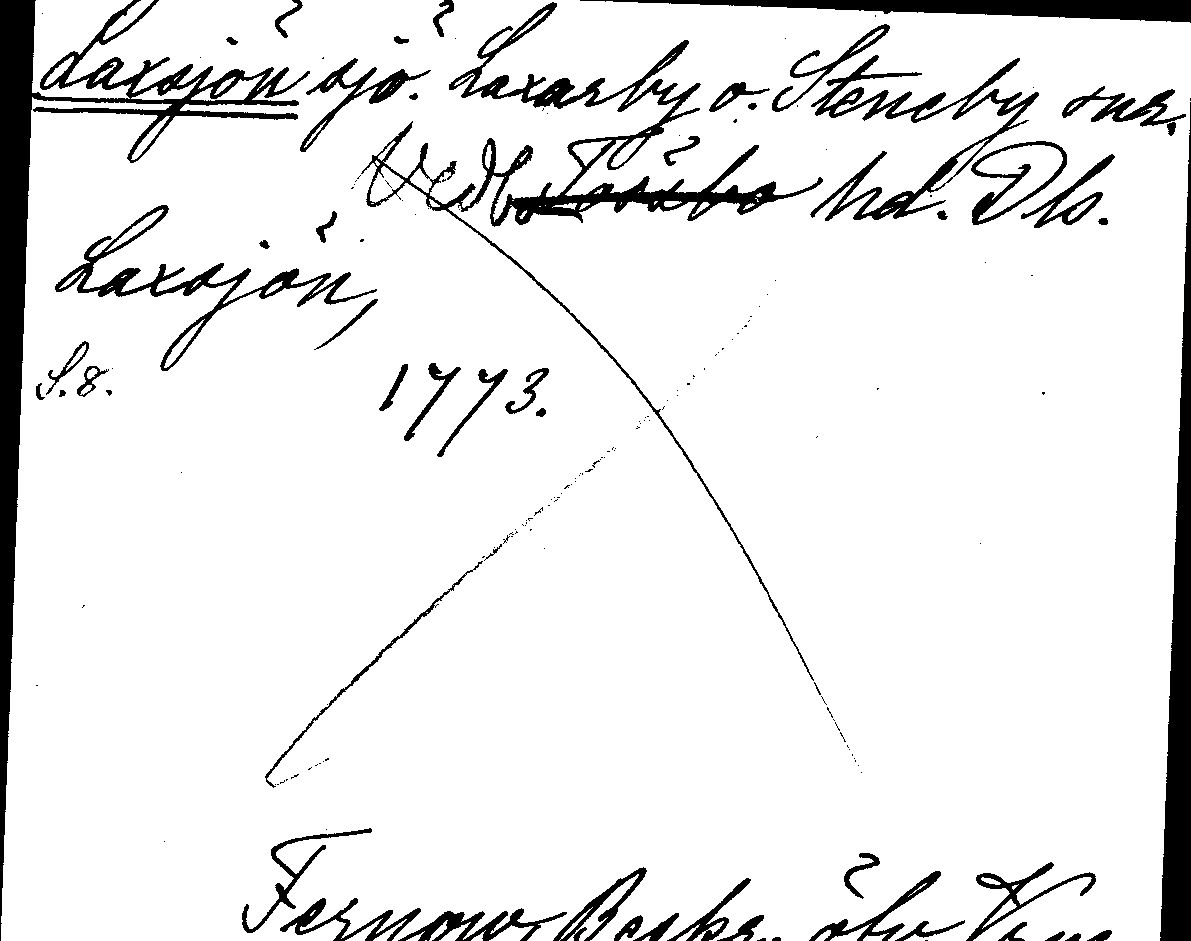 Laxsjön sjö. Laxarby o. Steneby snr.
Vedbo Tössbo hd. Dls.
Laxsjön,
S. 8. 1773.
Fernow, Beskr. öfv. Värm